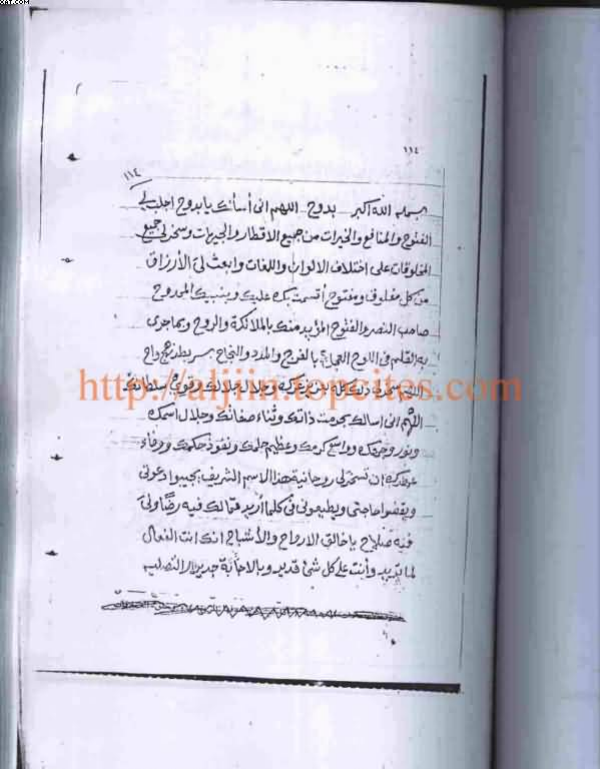 ١١٤
١١٤
بسم الله الله أكبر بدوح اللهم انى أسألك يا بدوح اجلب لى
الفتوح والمنافع والخيرات من جميع الاقطار والجهات وسخر لى جميع
المخلوقات على اختلاف الالوان واللغات وابعث لى الأرزاق
من كل مغلوق ومفتوح أقسمت بك عليك وبنبيك الممدوح
صاحب النصر والفتوح المؤيد منك بالملائكة والروح وبما جرى
به القلم فى اللوح العجل بالفرج والمدد والنجاح بسر بطد زهج واح
http://aljiin.topcites.com
اللهم انى اسالك بحرمت ذاتك وثناء صفاتك وجلال اسمك
ونور وجهك وواسع كرمك وعظيم حلمك ونفوذ حكمك ووفاء
ان تسخر لى روحانية هذا الاسم الشريف يجيبوا دعوتى
ويقضوا حاجتى ويطيعونى فى كلما أريد فمالك فيه رضًا ولى
فيه صلاح يا خالق الارواح والأشباح انك انت الفعال
لما تريد وأنت على كل شئ قدير وبالاجابة جدير